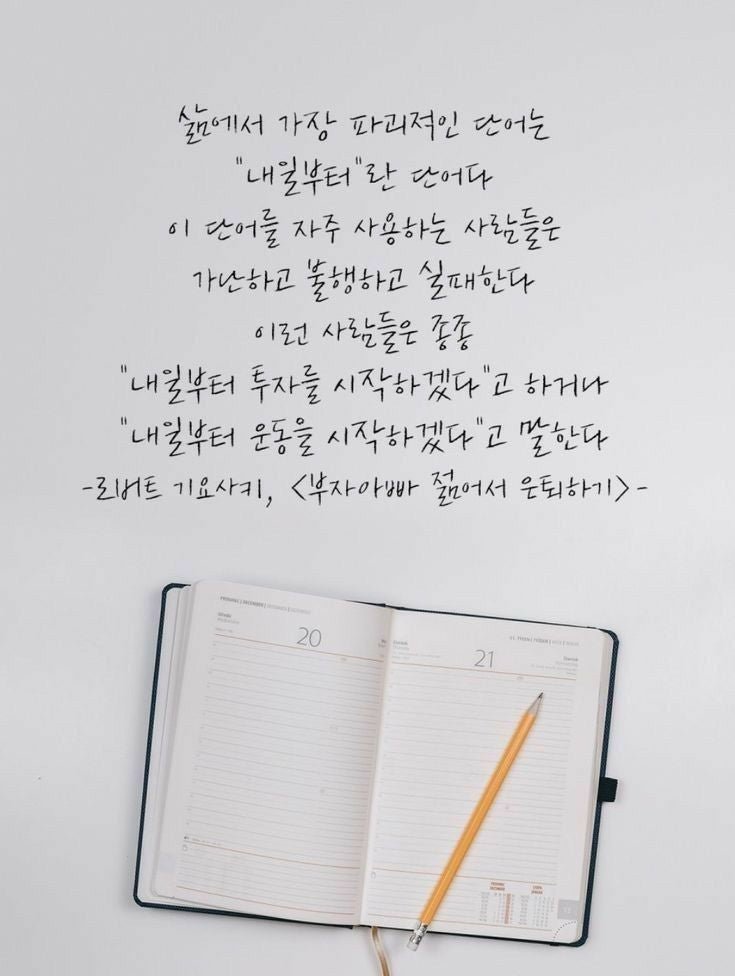 삶에서 가장 파괴적인 단어는
"내일부터"란 단어다
이 단어를 자주 사용하는 사람들은
가난하고 불행하고 실패한다
이런 사람들은 종종
"내일부터 투자를 시작하겠다"고 하거나
"내일부터 운동을 시작하겠다"고 말한다
-로버트 기요사키, <부자아빠 젊어서 은퇴하기>-
20
21